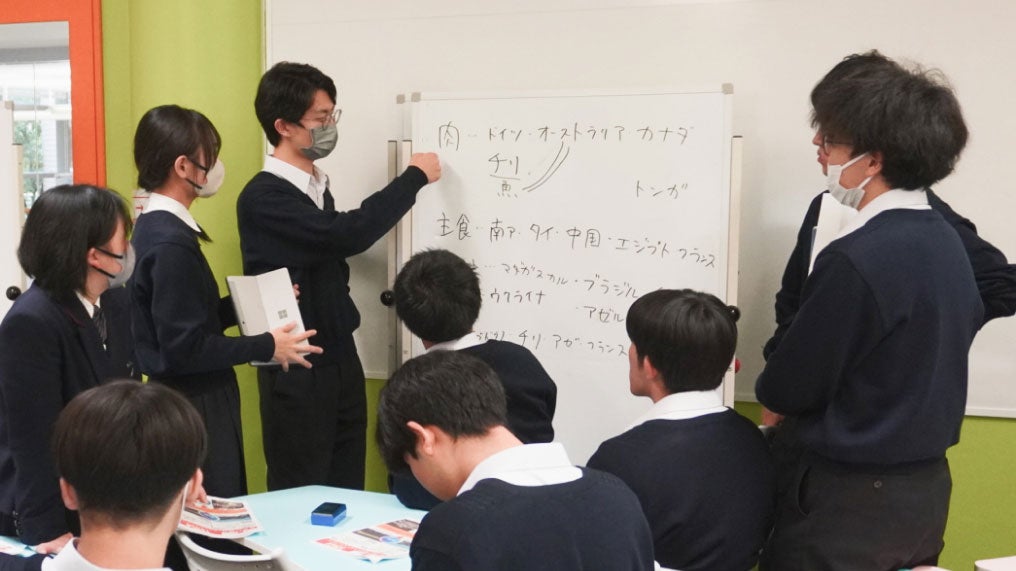 肉‥ドイツ・オーストラリア・カナダ
チリ
魚
トンガ
主食‥南ア・タイ・中国・エジプト フランス
… マダガスカル・ブラジル
ウクライナ ・アゼル
チリ・アゼ・フランス